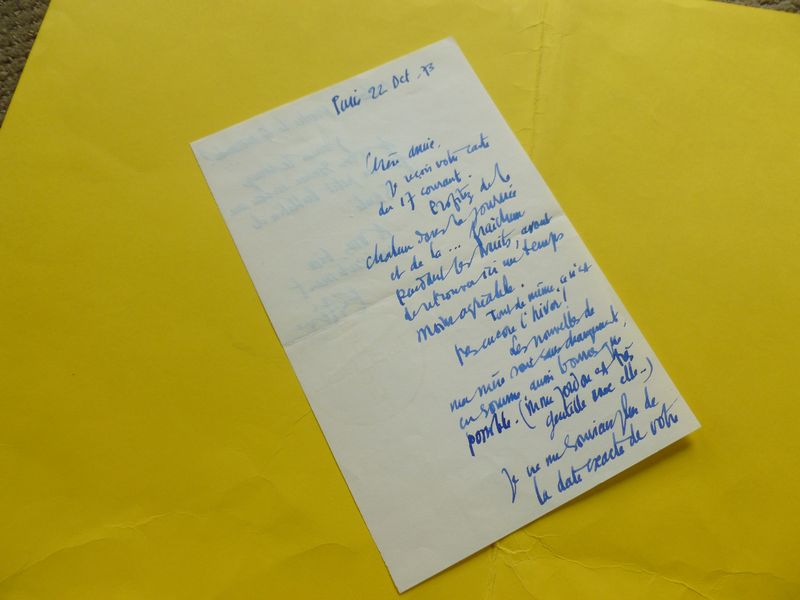 Paris 22 Oct 73
Chère amie,
Je reçois votre carte
du 17 courant.
Profitez de la
chaleur dans la journée
et de la ... fraîcheur
pendant les nuits, avant
de retrouver ici un temps
moins agréable.
Tout de même, ce n'est
pas encore l'hiver!
Les nouvelles de
ma mère sont sans changement,
en somme aussi bonnes que
possible. (Mme est très
gentille avec elle..)
Je ne me souviens plus de
la date exacte de votre